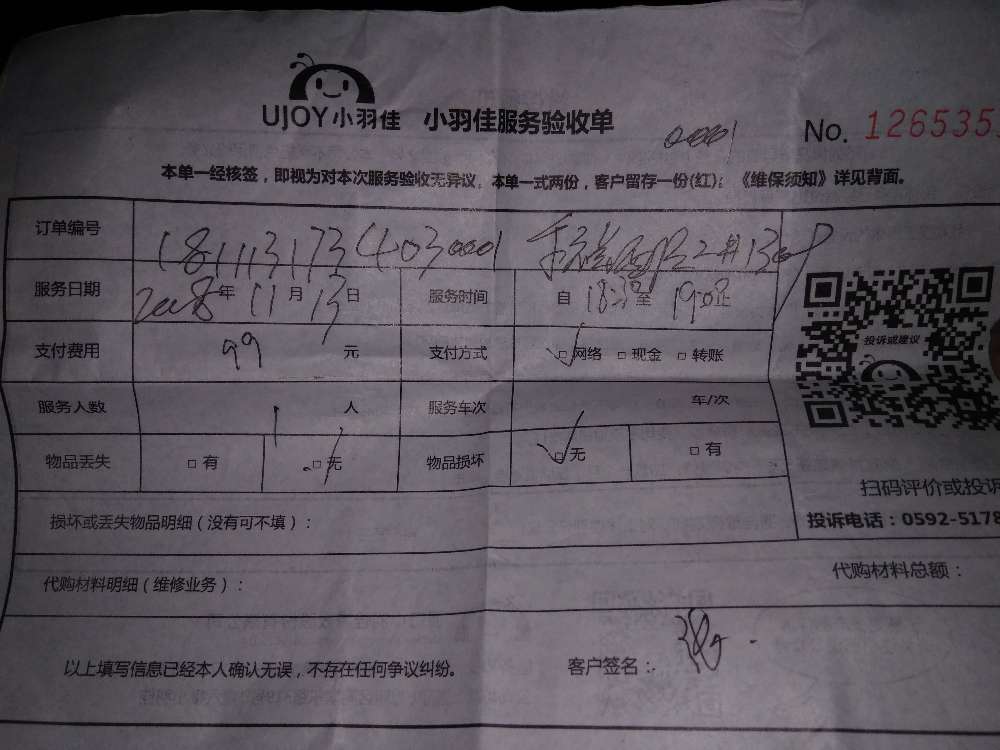 UJOY小羽佳 小羽佳服务验收单
0001
No. 126535
本单一经核签，即视为对本次服务验收无异议。本单一式两份，客户留存一份(红)；《维保须知》详见背面。
订单编号 1811131734030001
服务日期 2018年11月13日 服务时间 自18:38至19:08止
支付费用 99 元 支付方式 □网络 □现金 □转账
投诉或建议
服务人数 1 人 服务车次 车/次
物品丢失 □有 □无 物品损坏 □无 □有
扫码评价或投诉
损坏或丢失物品明细（没有可不填）：
投诉电话：0592-5178
代购材料明细（维修业务）： 代购材料总额：
以上填写信息已经本人确认无误，不存在任何争议纠纷。 客户签名：